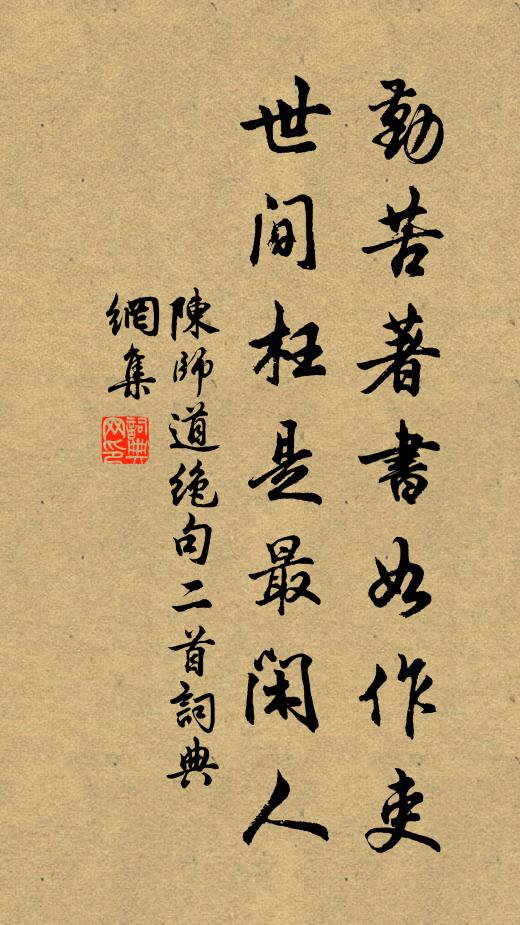 勤苦著書如作吏
世間枉是最閑人
陳師道絶句二首詞典
網集
詞典
網印